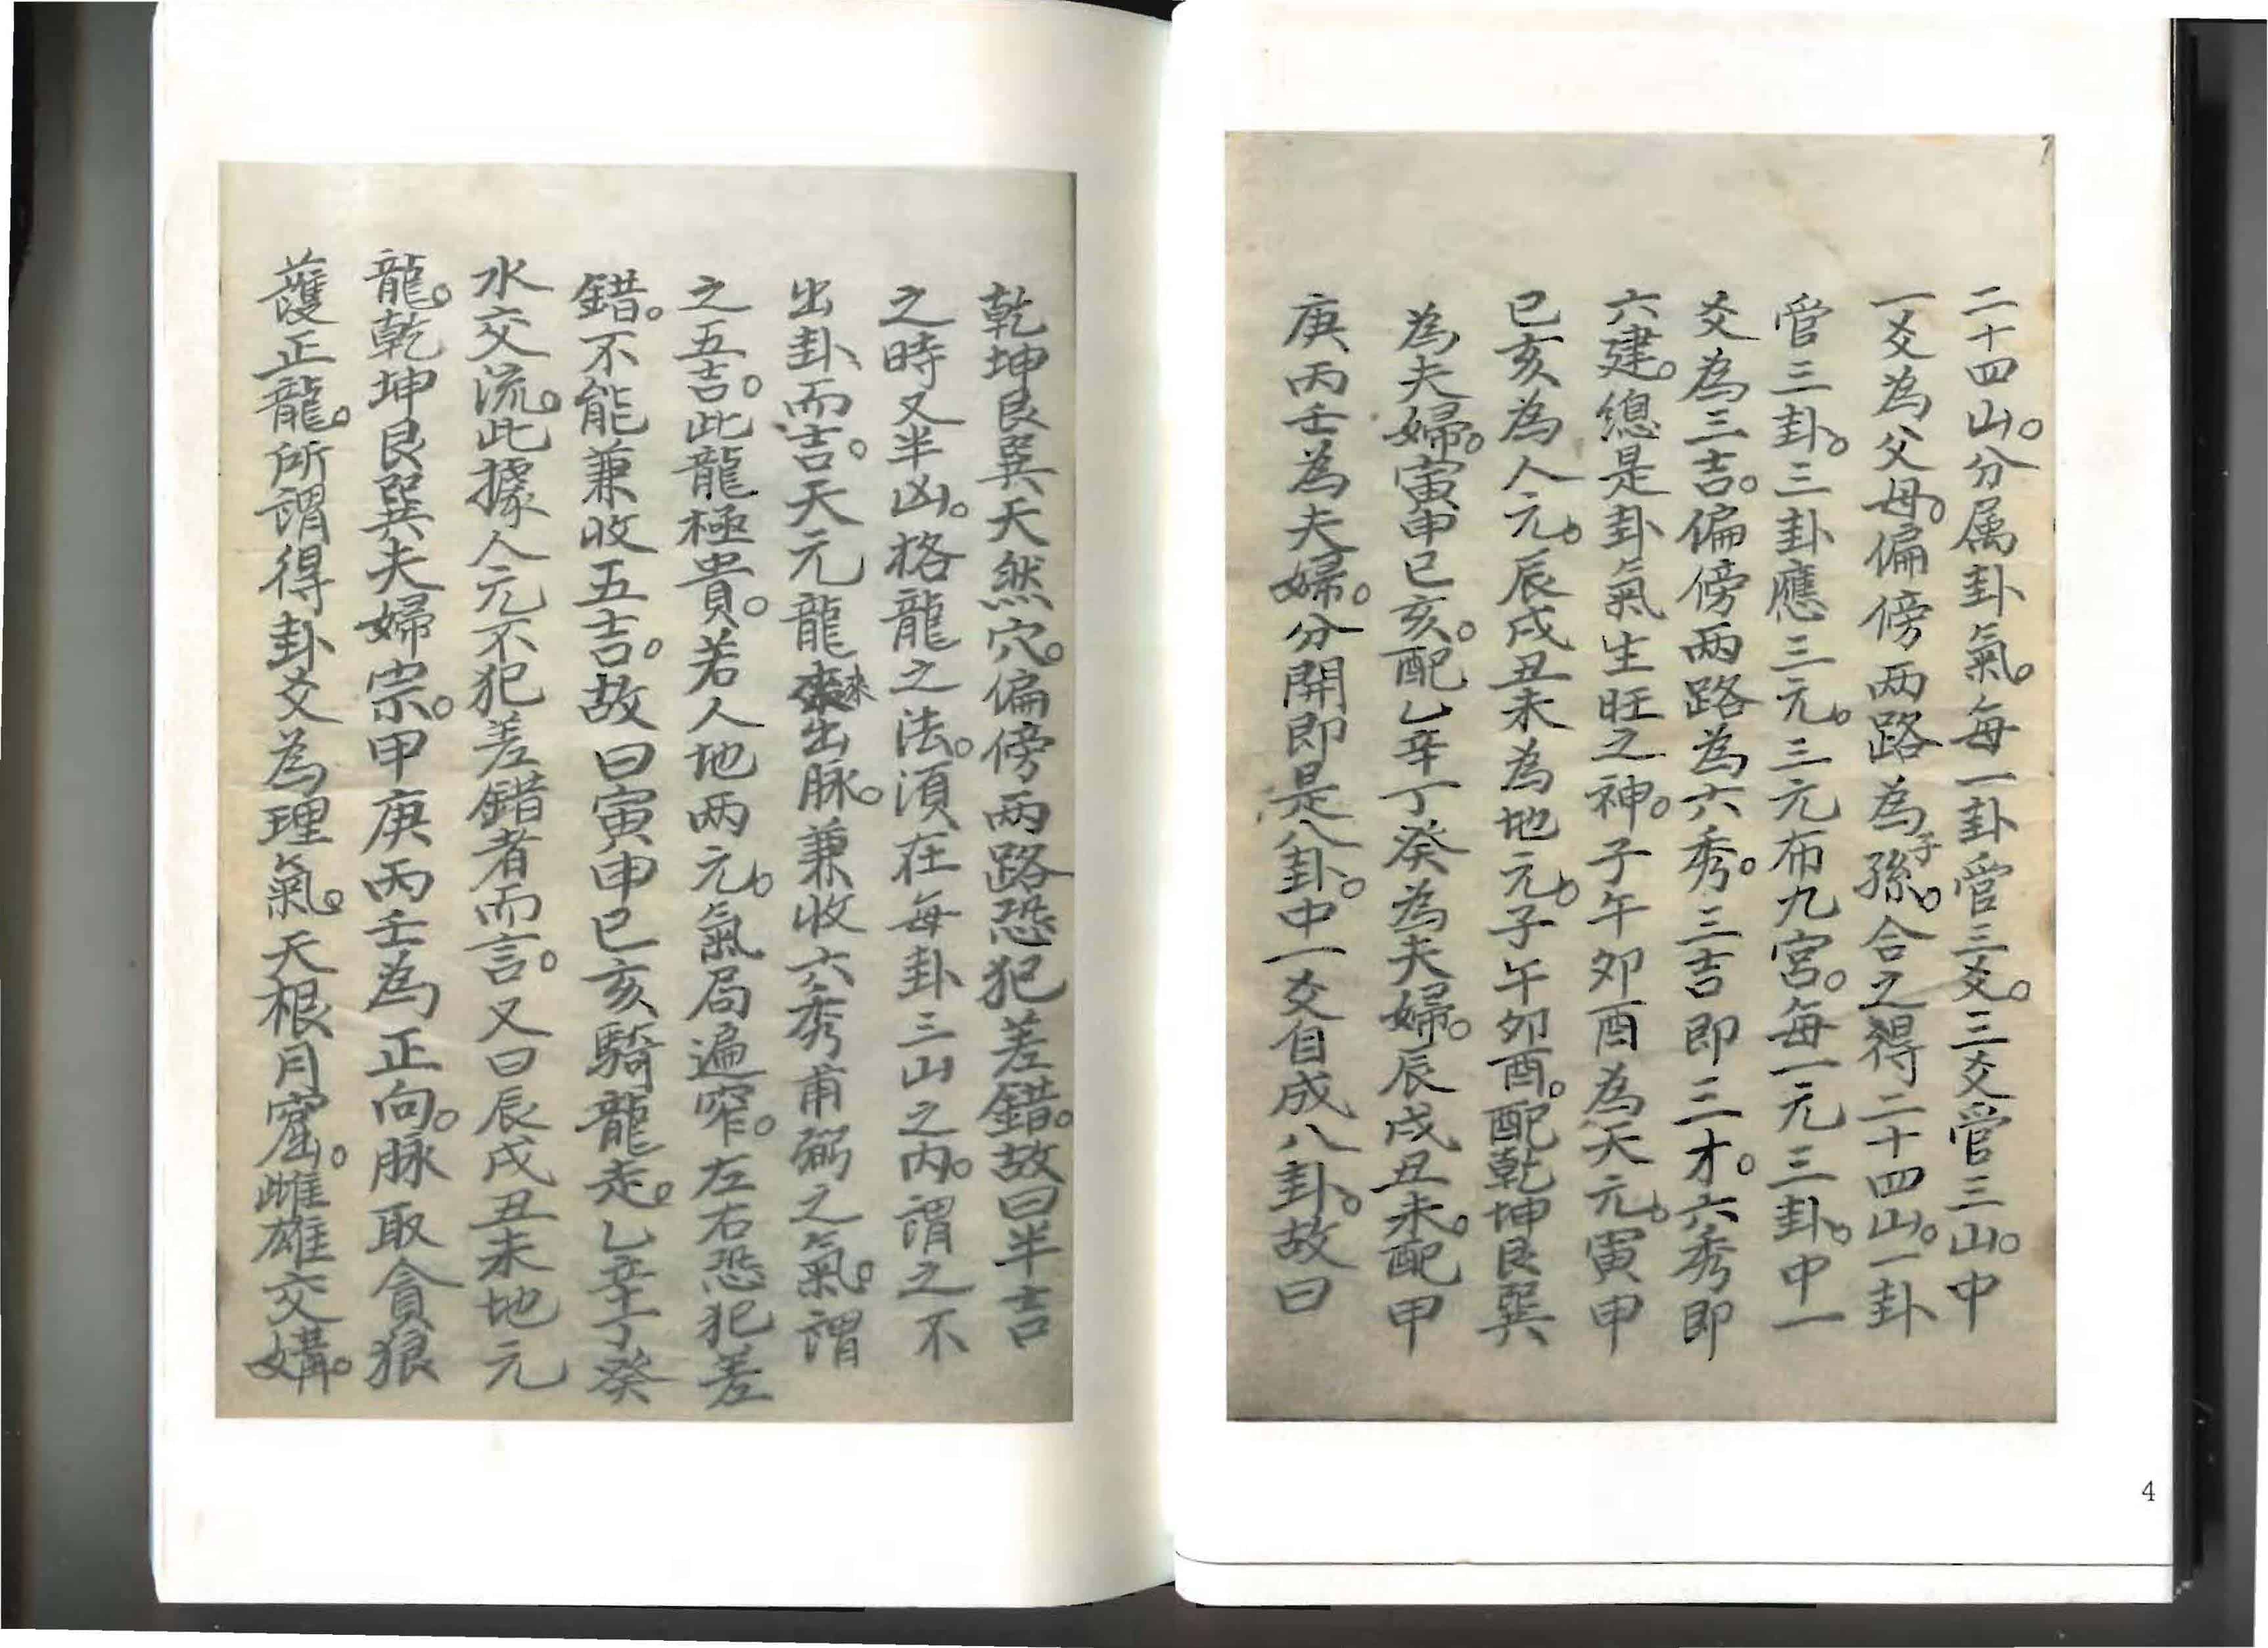 二十四山。分属卦氣。每一卦管三爻。三爻管三山。中
一爻為父母。偏傍两路為子孫。合之得二十四山。一卦
管三卦。三卦應三元。三元布九宮。每一元三卦。中一
爻為三吉。偏傍两路為六秀。三吉即三才。六秀即
六建。總是卦氣生旺之神。子午夘酉為天元。寅申
巳亥為人元。辰戌丑未為地元。子午夘酉。配乾坤艮巽
為夫婦。寅申巳亥。配乙辛丁癸為夫婦。辰戌丑未。配甲
庚丙壬為夫婦。分開即是八卦。中一爻自成八卦。故曰
乾坤艮巽天然穴。偏傍两路恐犯差錯。故曰半吉
之時又半凶。格龍之法。須在每卦三山之内。謂之不
出卦而吉。天元龍來出脉。兼收六秀甫弼之氣。謂
之五吉。此龍極貴。若人地两元。氣局遍窄。左右恐犯差
錯。不能兼收五吉。故曰寅申巳亥騎龍走。乙辛丁癸
水交流。此據人元不犯差錯者而言。又曰辰戌丑未地元
龍。乾坤艮巽夫婦宗。甲庚丙壬為正向。脉取貪狼
護正龍。所謂得卦爻為理氣。天根月窟。雌雄交媾。
4